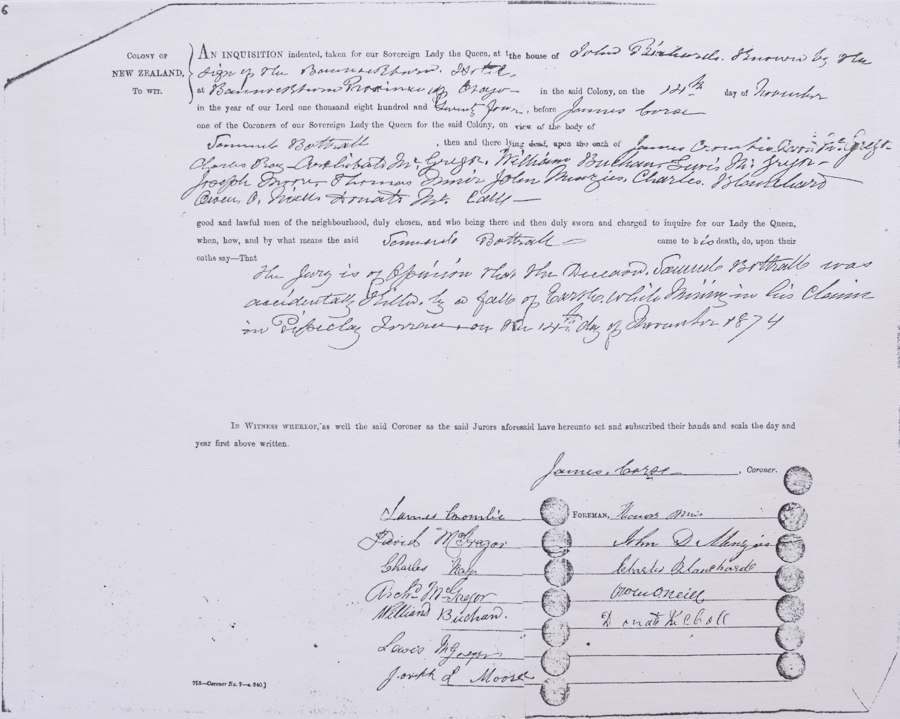 6
COLONY OF NEW ZEALAND, TO WIT.
AN INQUISITION indented, taken for our Sovereign Lady the Queen, at the house of John Richards. Known by the
Sign of the Bannockburn Hotel
at Bannockburn Province of Otago in the said Colony, on the 14th day of November
in the year of our Lord one thousand eight hundred and Seventy four, before James Corse
one of the Coroners of our Sovereign Lady the Queen for the said Colony, on view of the body of
Samuel Bottrall, then and there lying dead, upon the oath of James Crombie David McGregor
Charles Ray Archibald McGregor, William Buchan, Lewis McGregor
Joseph Moore Thomas Muir John Menzies, Charles Blanchard
Owen O'Neill Donald
good and lawful men of the neighbourhood, duly chosen, and who being there and then duly sworn and charged to inquire for our Lady the Queen,
when, how, and by what means the said Samuel Bottrall came to his death, do, upon their
oaths say—That
The Jury is of Opinion that the Deceased, Samuel Bottrall was
accidentally Killed, by a fall of Earth, while Mining in his Claim
in Pipeclay Terrace on the 14th day of November 1874
IN WITNESS WHEREOF, as well the said Coroner as the said Jurors aforesaid have hereunto set and subscribed their hands and seals the day and
year first above written.
James Corse, Coroner.
James Crombie FOREMAN, Thomas Muir
David McGregor John D Menzies
Charles Ray Charles Blanchard
Archd McGregor Owen O'Neill
William Buchan. Donald
Lewis McGregor
Joseph L Moore
728—Coroner No. 7—a. 340.]